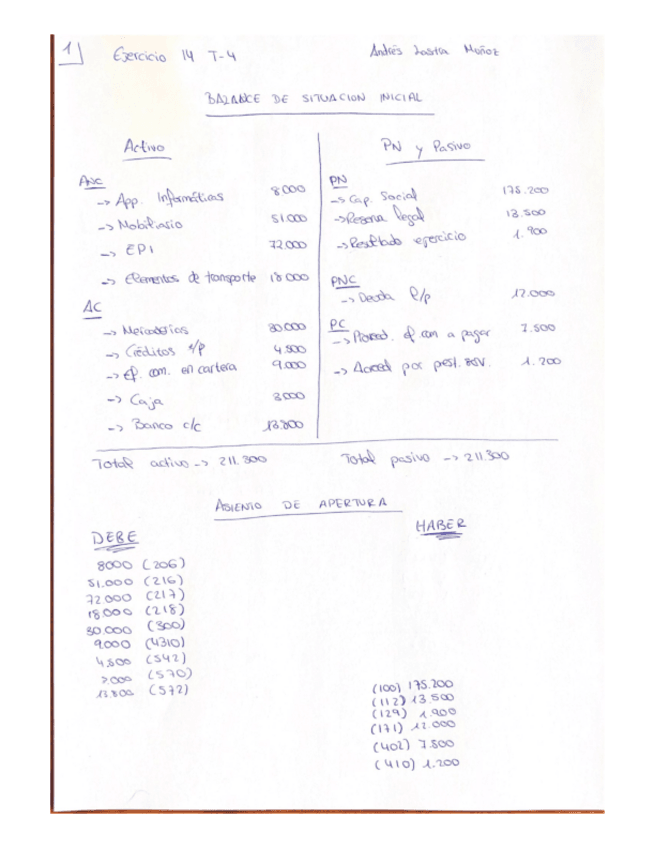 1 Ejercicio 14 T-4 Andrés Lastra Muñoz
BALANCE DE SITUACION INICIAL
Activo PN y Pasivo
ANC
-> App. Informáticas 8000
-> Mobiliario 51.000
-> EPI 72.000
-> Elementos de transporte 18.000
AC
-> Mercaderías 30.000
-> Créditos c/p 4.500
-> ef. com. en cartera 9.000
-> Caja 3000
-> Banco c/c 13.800
PN
-> Cap. Social 175.200
-> Reserva legal 13.500
-> Resultado ejercicio 1.900
PNC
-> Deuda l/p 12.000
PC
-> Proveed. ef. com a pagar 7.500
-> Acreed por pest. serv. 1.200
Total activo -> 211.300 Total pasivo -> 211.300
ASIENTO DE APERTURA
DEBE HABER
8000 (206)
51.000 (216)
72000 (217)
18.000 (218)
30.000 (300)
9000 (4310)
4.500 (542)
3.000 (570)
13.800 (572)
(100) 175.200
(112) 13.500
(129) 1.900
(171) 12.000
(402) 7.500
(410) 1.200